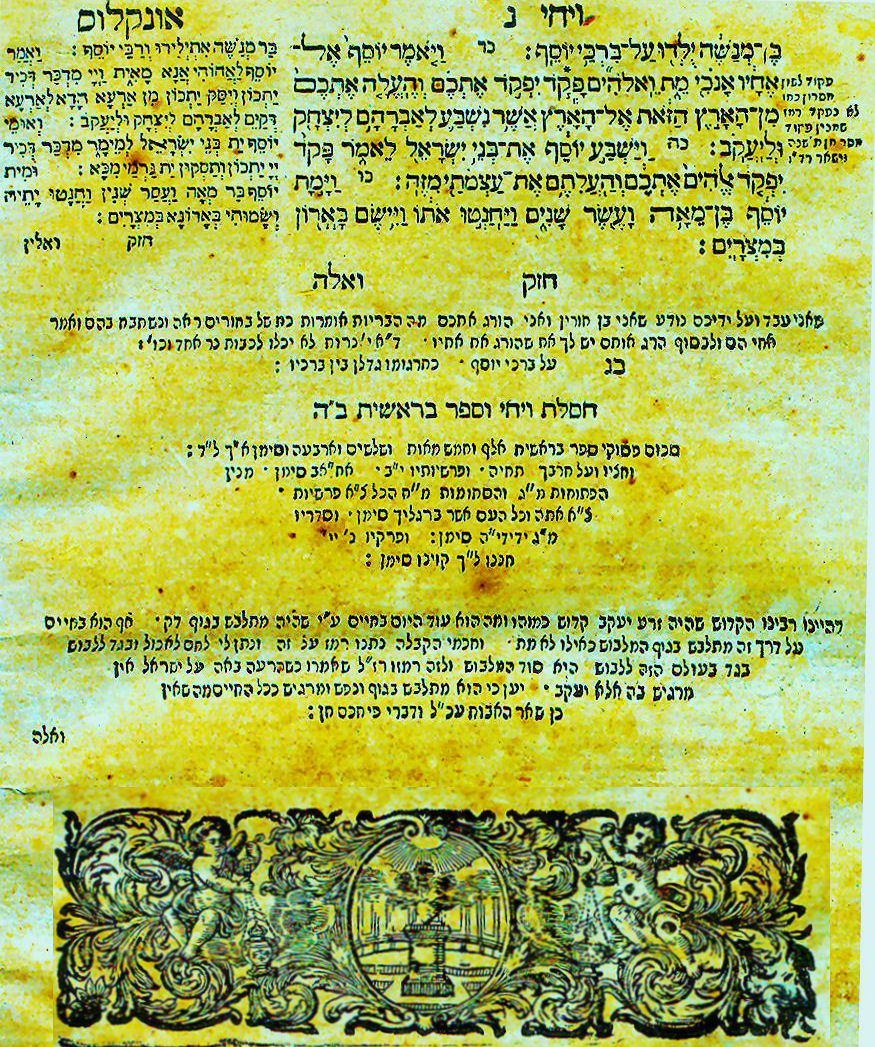 ויחי נ
אונקלוס
בֶּן־מְנַשֶּׁה יֻלְּדוּ עַל־בִּרְכֵּי יוֹסֵף: כד וַיֹּאמֶר יוֹסֵף אֶל־
אֶחָיו אָנֹכִי מֵת וֵאלֹהִים פָּקֹד יִפְקֹד אֶתְכֶם וְהֶעֱלָה אֶתְכֶם
מִן־הָאָרֶץ הַזֹּאת אֶל־הָאָרֶץ אֲשֶׁר נִשְׁבַּע לְאַבְרָהָם לְיִצְחָק
וּלְיַעֲקֹב: כה וַיַּשְׁבַּע יוֹסֵף אֶת־בְּנֵי יִשְׂרָאֵל לֵאמֹר פָּקֹד
יִפְקֹד אֱלֹהִים אֶתְכֶם וְהַעֲלִתֶם אֶת־עַצְמֹתַי מִזֶּה: כו וַיָּמָת
יוֹסֵף בֶּן־מֵאָה וָעֶשֶׂר שָׁנִים וַיַּחַנְטוּ אֹתוֹ וַיִּישֶׂם בָּאָרוֹן
בְּמִצְרָיִם:
פקוד לשון
חסרון כמו
לא נפקד
בַּר מְנַשֶּׁה אִתְיְלִידוּ וְרַבֵּי יוֹסֵף: וַאֲמַר
יוֹסֵף לַאֲחוֹהִי אֲנָא מָאִית וַיְיָ מִדְכַּר דְּכִיר
יַתְכוֹן וְיַסֵּק יַתְכוֹן מִן אַרְעָא הָדָא לְאַרְעָא
דְּקַיִּים לְאַבְרָהָם לְיִצְחָק וּלְיַעֲקֹב: וְאוֹמֵי
יוֹסֵף יַת בְּנֵי יִשְׂרָאֵל לְמֵימָר מִדְכַּר דְּכִיר
יְיָ יַתְכוֹן וְתַסְּקוּן יַת גַּרְמַי מִכָּא: וּמִית
יוֹסֵף בַּר מְאָה וַעֲסַר שְׁנִין וַחֲנָטוּ יָתֵיהּ
וְשָׂמוּהִי בַּאֲרוֹנָא בְּמִצְרָיִם:
חזק ואלין
חזק ואלה
שאני עבד ועל ידיכם נודע שאני בן חורין ואני הורג אתכם מה הבריות אומרות כת של בחורים ראה ונשתבח בהם ואמר
אחי הם ולבסוף הרג אותם יש לך אח שהורג את אחיו ד״א י׳ נרות לא יכלו לכבות נר אחד וכו׳:
כג על ברכי יוסף כתרגומו גדלן בין ברכיו:
חסלת ויחי וספר בראשית ב״ה
סכום פסוקי ספר בראשית אלף וחמש מאות ושלשים וארבעה וסימן א״ך ל״ד:
וחציו ועל חרבך תחיה ופרשיותיו י״ב אח״אב סימן מנין
הפתוחות מ״ג והסתומות מ״ח הכל צ״א פרשיות
צ״א אתה וכל העם אשר ברגליך סימן וסדריו
מ״ג ידידי״ה סימן: ופרקיו נ׳ יי׳
חננו ל״ך קוינו סימן:
דהיינו רבינו הקדוש שהיה זרע יעקב קדוש כמוהו ומה הוא עוד היום בחיים ע״י שהיה מתלבש בגוף דק אף הוא בחיים
על דרך זה מתלבש בגוף המלובש כאילו לא מת וחכמי הקבלה נתנו רמז על זה ונתן לי לחם לאכול ובגד ללבוש
בגד בעולם הזה ללבוש היא סוד המלבוש ולזה רמזו רז״ל שאמרו כשהרעה באה על ישראל אין
מרגיש בה אלא יעקב יען כי הוא מתלבש בגוף ונפש ומרגיש ככל החיים מה שאין
כן שאר האבות עכ״ל ודברי פי חכם חן:
ואלה